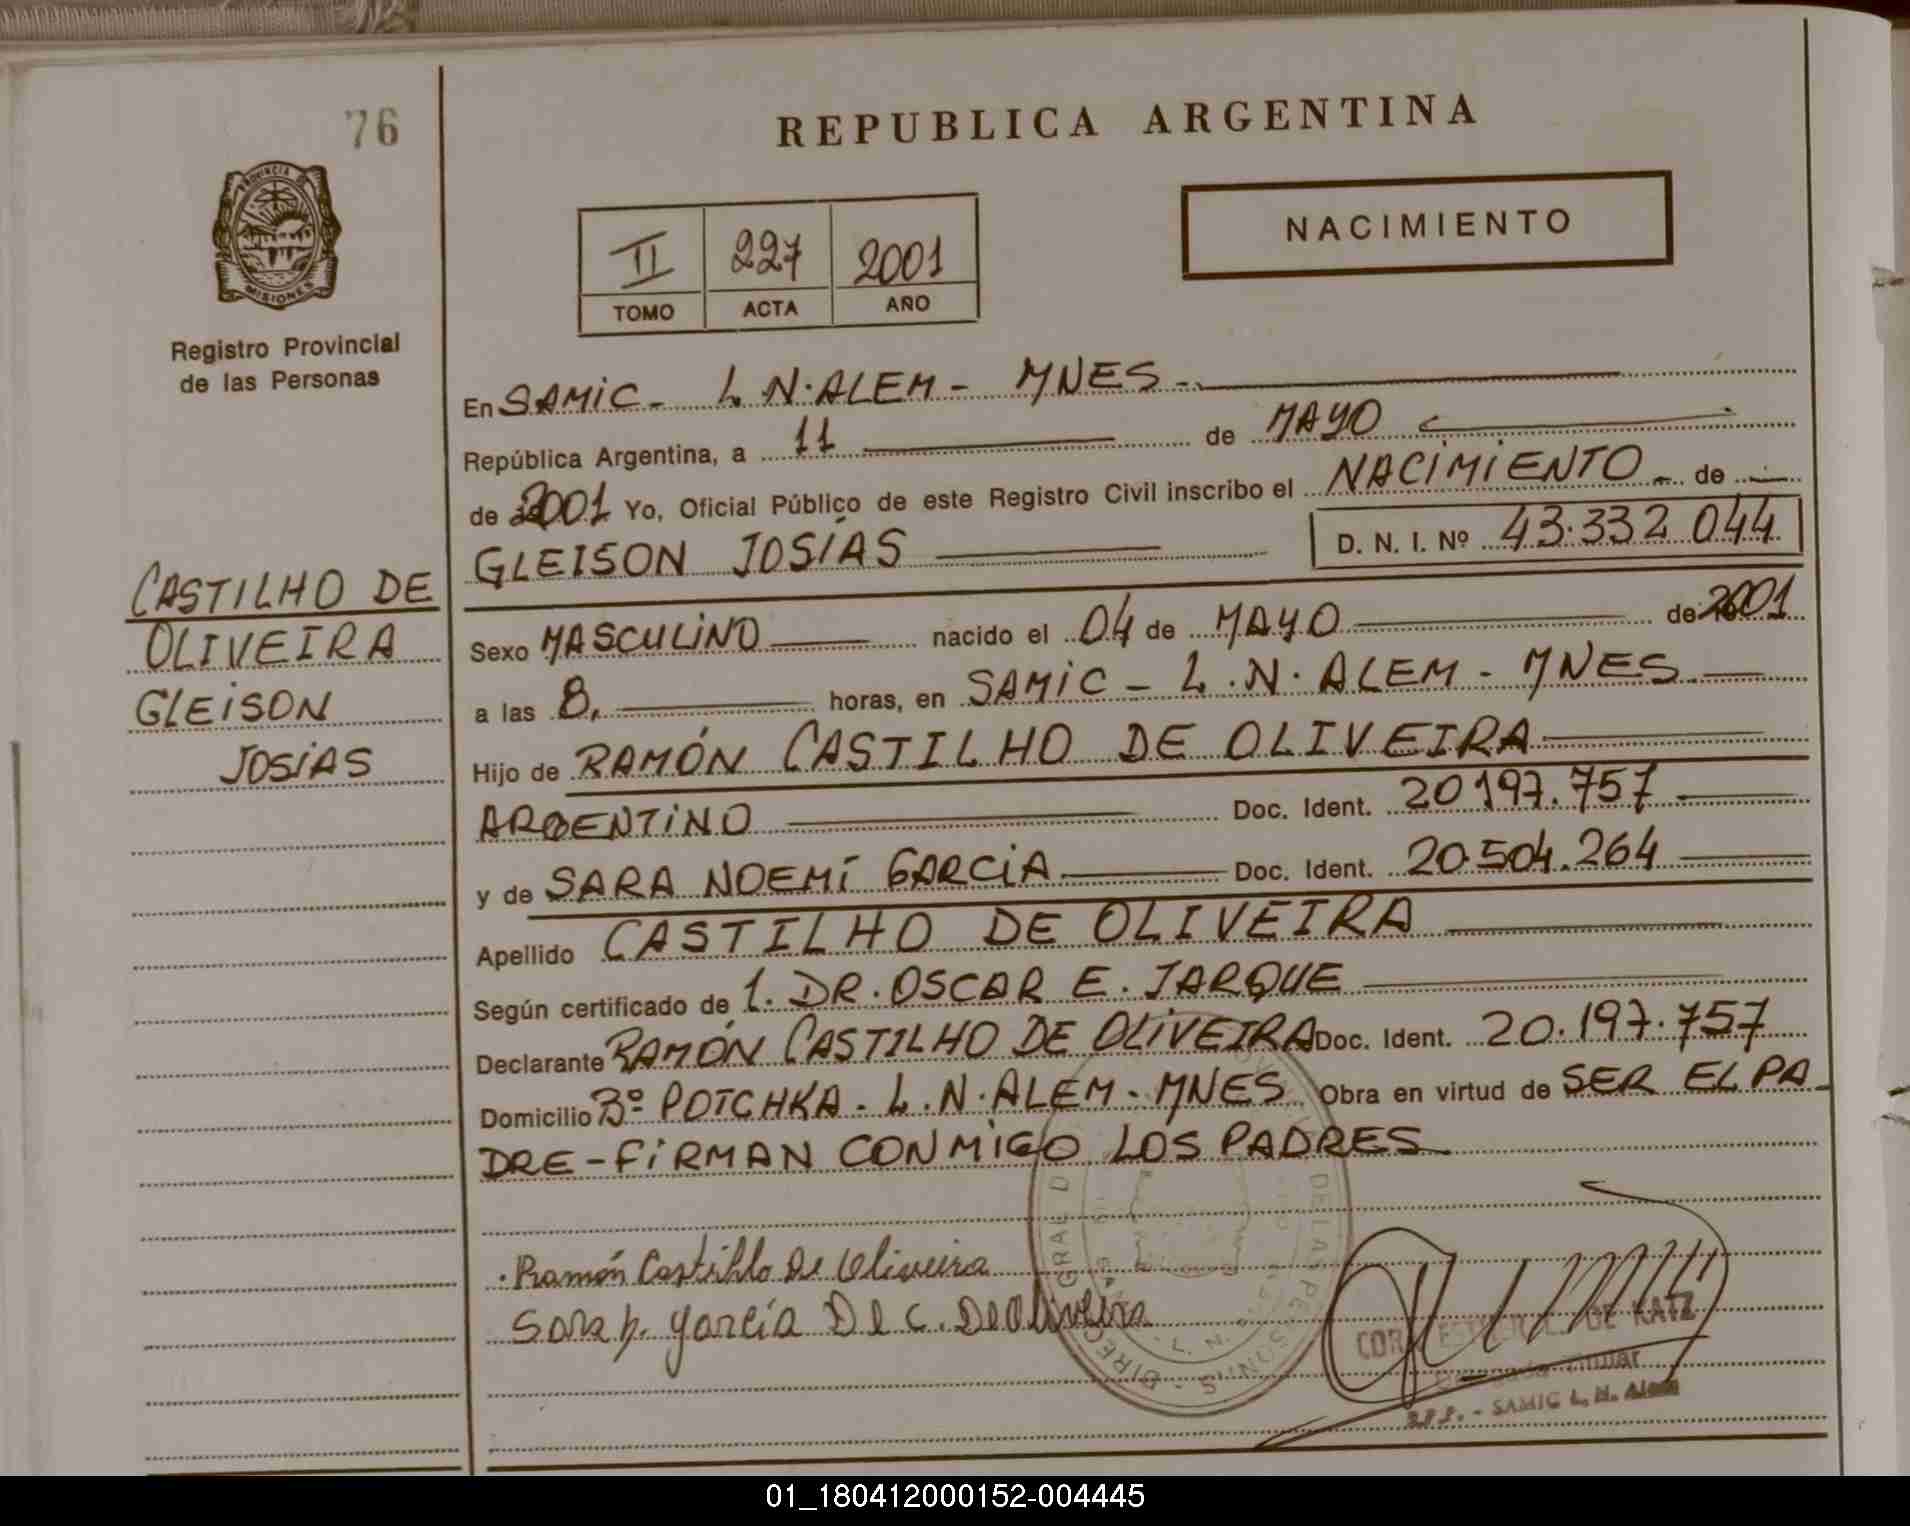 76
REPUBLICA ARGENTINA
PROVINCIA DE
MISIONES
Registro Provincial
de las Personas
NACIMIENTO
II 227 2001
TOMO ACTA AÑO
En SAMIC - L.N. ALEM - MNES -
República Argentina, a 11 de MAYO
de 2001 Yo, Oficial Público de este Registro Civil inscribo el NACIMIENTO - de
GLEISON JOSÍAS D. N. I. Nº 43.332.044
CASTILHO DE
OLIVEIRA
GLEISON
JOSIAS
Sexo MASCULINO nacido el 04 de MAYO de 2001
a las 8, horas, en SAMIC - L.N. ALEM - MNES
Hijo de RAMÓN CASTILHO DE OLIVEIRA
ARGENTINO Doc. Ident. 20197.757
y de SARA NOEMÍ GARCIA Doc. Ident. 20.504.264
Apellido CASTILHO DE OLIVEIRA
Según certificado de 1. DR. OSCAR E. JARQUE
Declarante RAMÓN CASTILHO DE OLIVEIRA Doc. Ident. 20.197.757
Domicilio Bº POTCHKA - L.N. ALEM - MNES Obra en virtud de SER EL PA
DRE - FIRMAN CONMIGO LOS PADRES
Ramón Castihlo De Oliveira
Sara N. García De C. De Oliveira
DE KATZ
Titular
SAMIC L. N. Alem
01_180412000152-004445